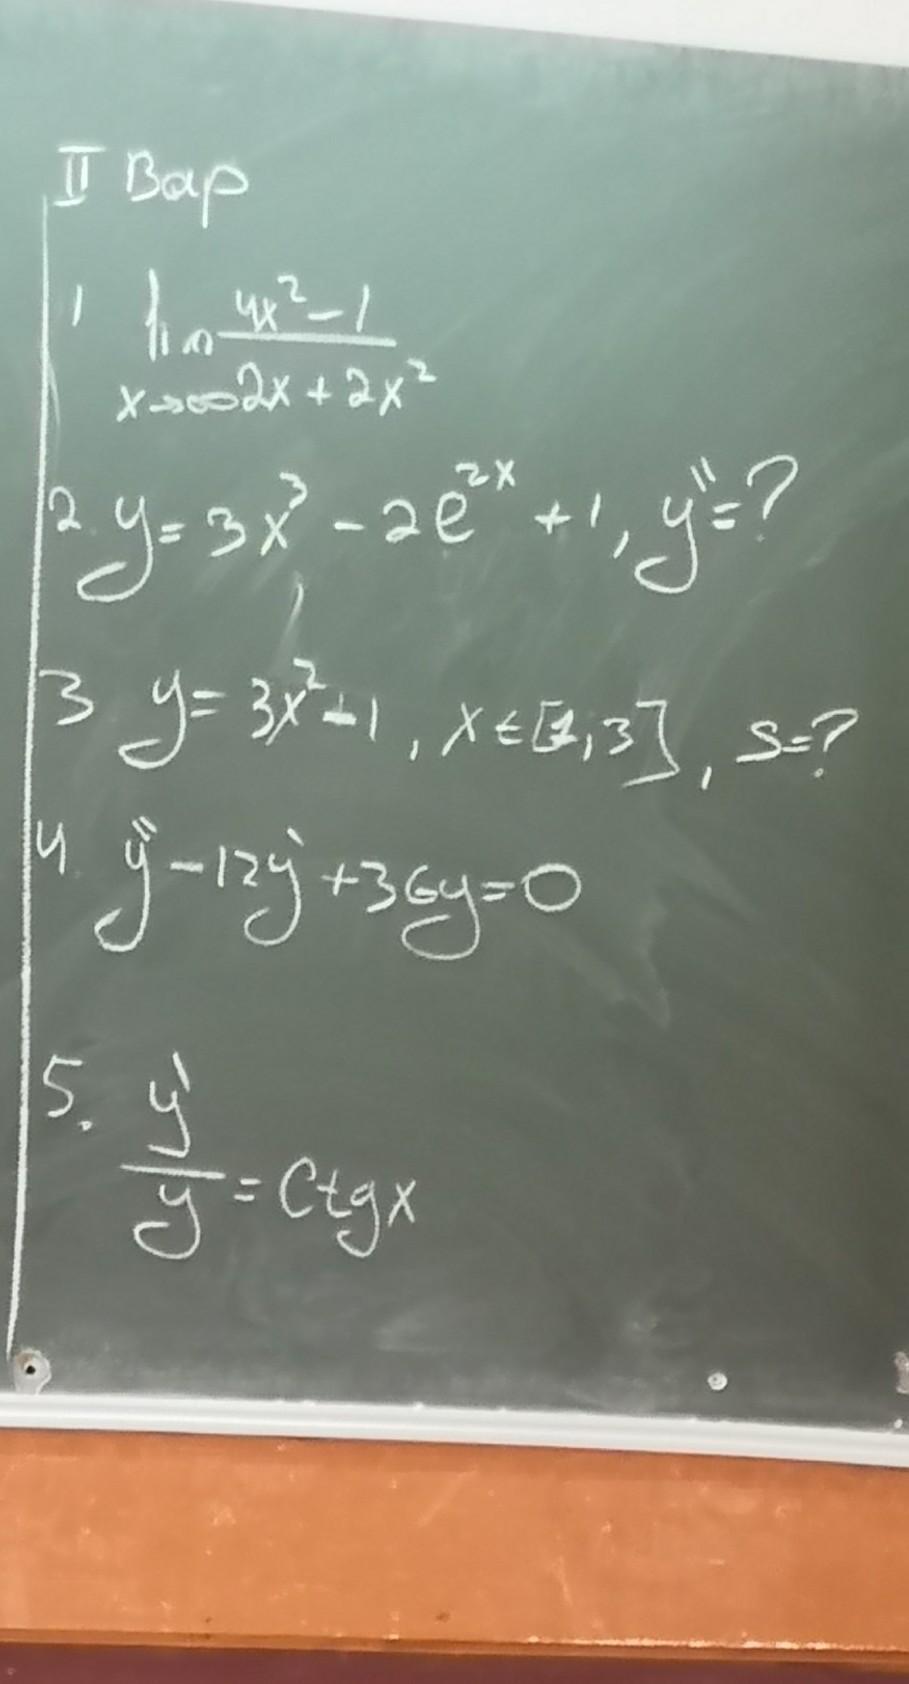 II Вар
1 lim (4x² - 1)/(2x + 2x²)
x→∞
2. y = 3x³ - 2e^(2x) + 1, y'' = ?
3 y = 3x² + 1, x ∈ [1, 3], S = ?
4. y'' - 12y' + 36y = 0
5. y'/y = Ctgx